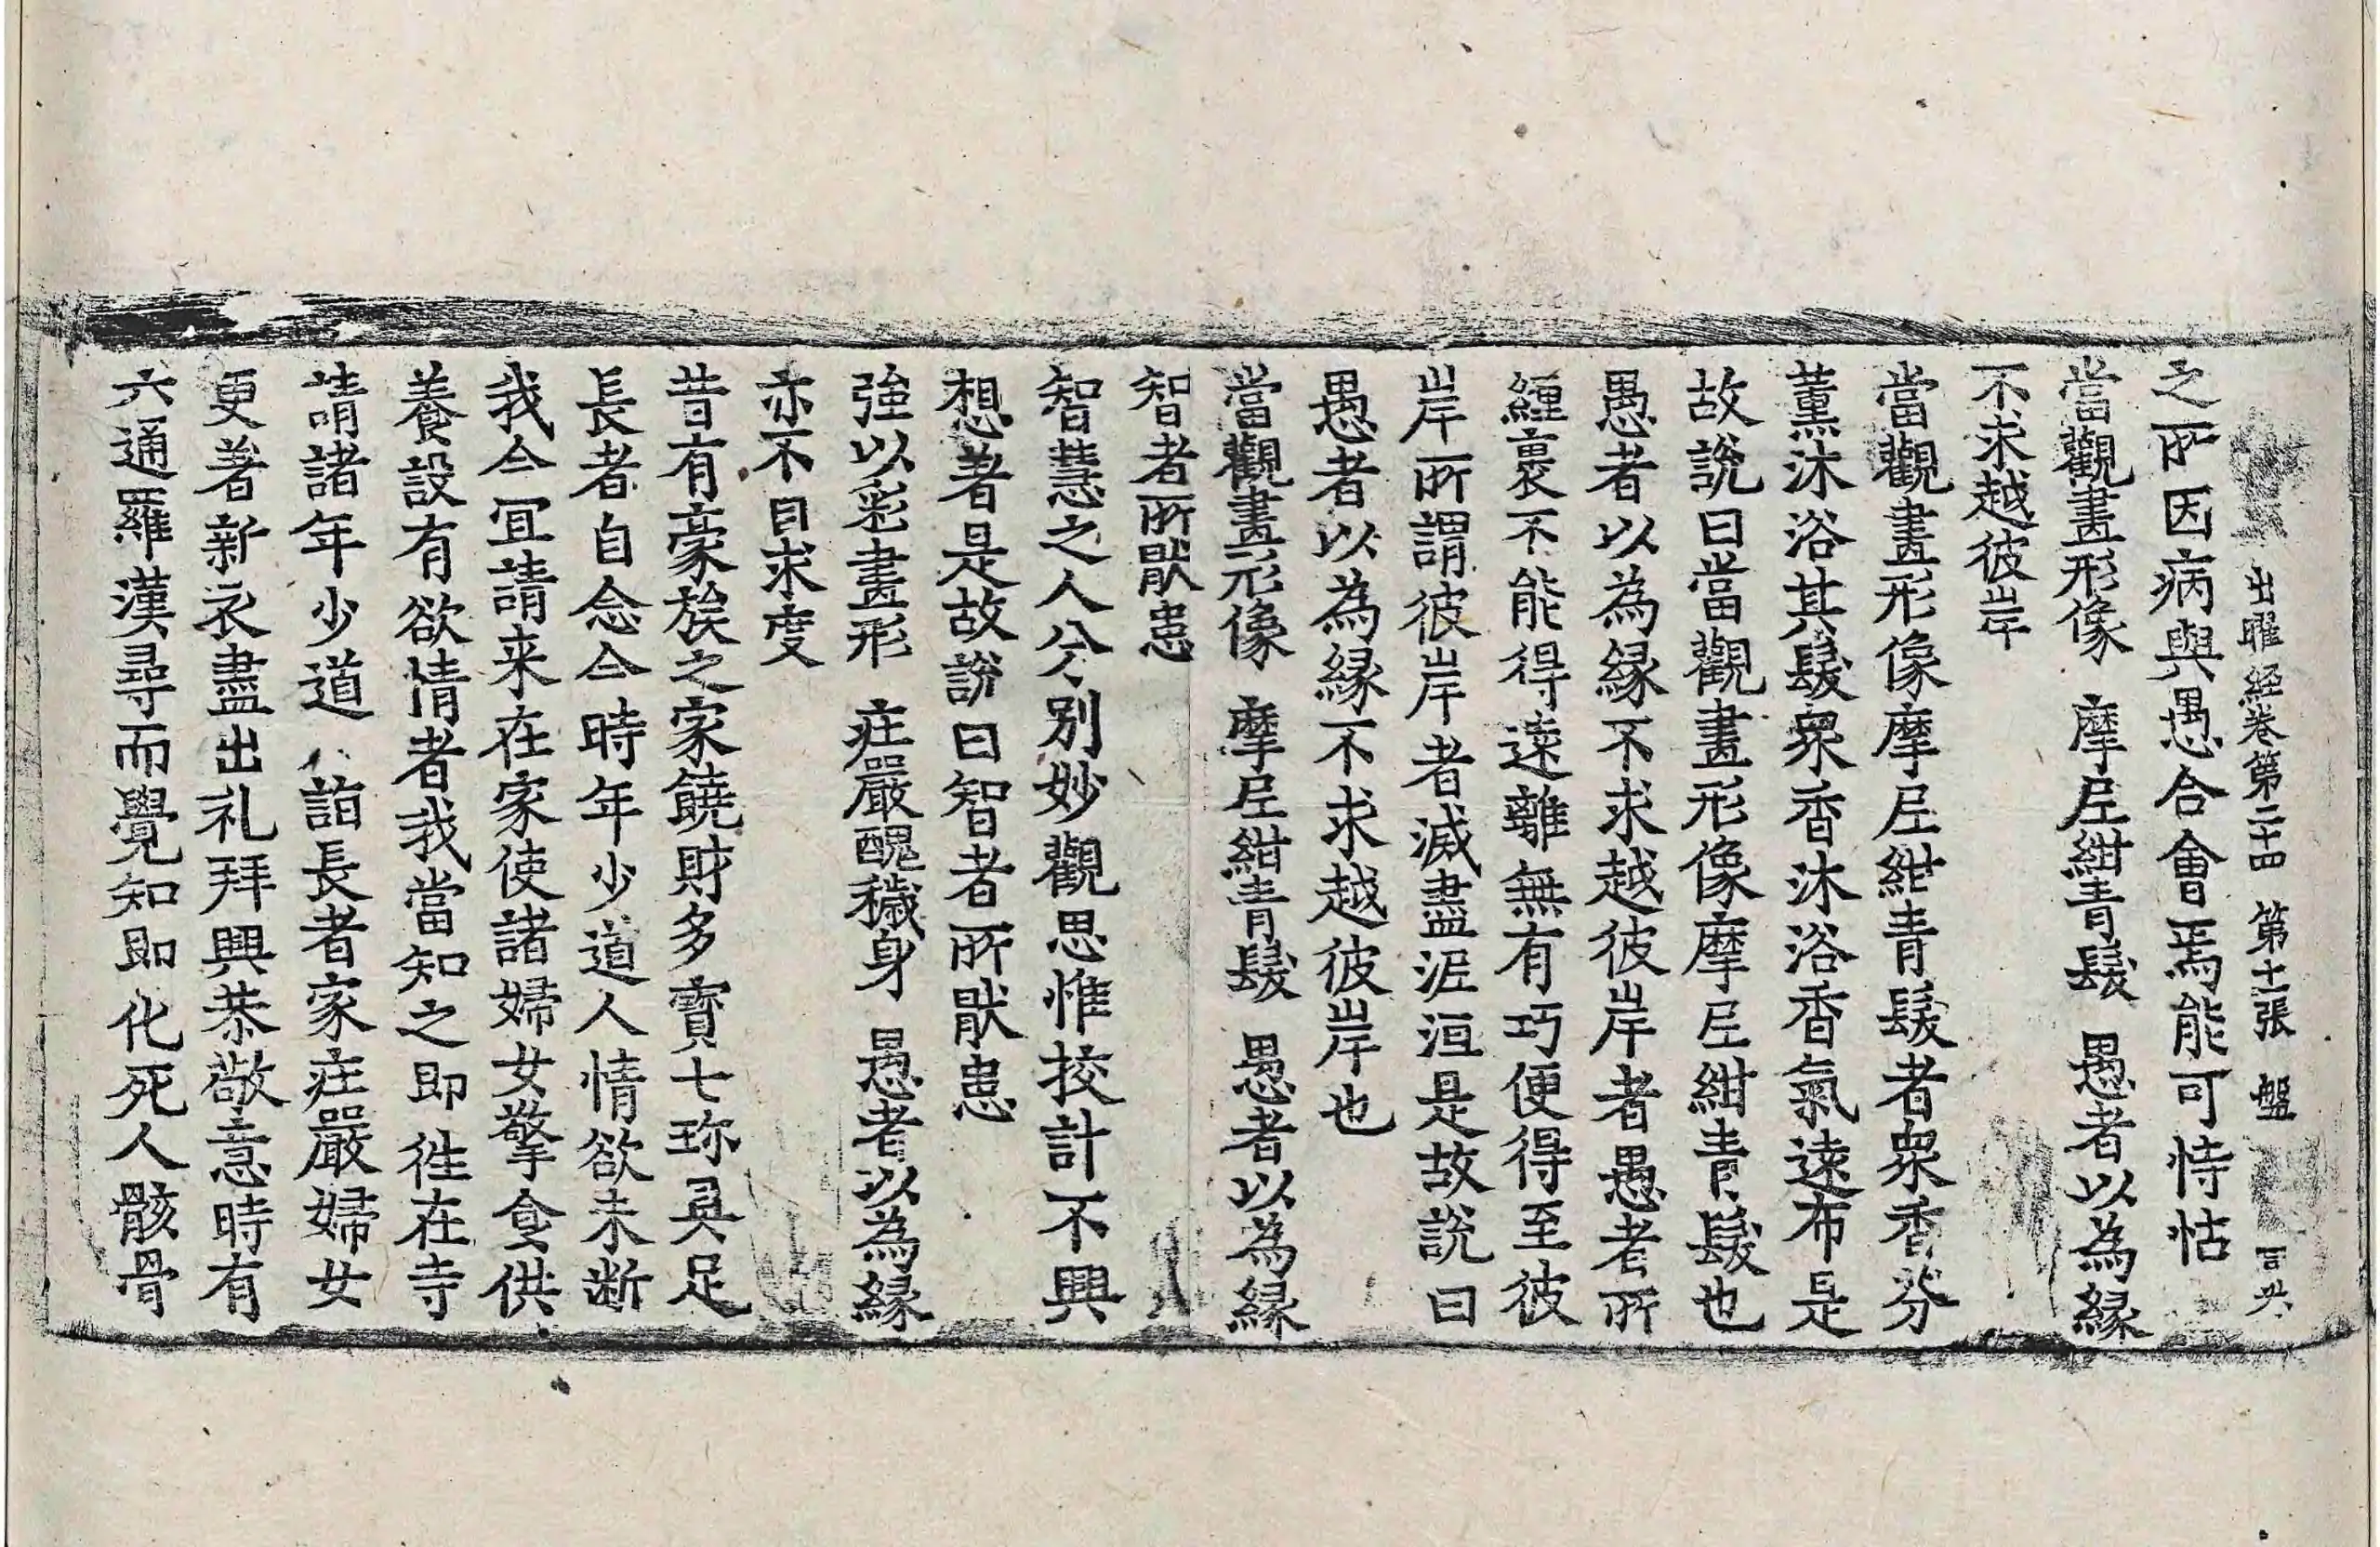 出曜經卷第二十四 第十一張 盤
之所因病與愚合會焉能可恃怙
當觀畫形像 摩尼紺青髮 愚者以為緣
不求越彼岸
當觀畫形像摩尼紺青髮者衆香芬
薰沐浴其髮衆香沐浴香氣遠布是
故說曰當觀畫形像摩尼紺青髮也
愚者以為緣不求越彼岸者愚者所
纏裹不能得遠離無有巧便得至彼
岸所謂彼岸者滅盡泥洹是故說曰
愚者以為緣不求越彼岸也
當觀畫形像 摩尼紺青髮 愚者以為緣
智者所猒患
智慧之人分別妙觀思惟挍計不興
想著是故說曰智者所猒患
強以彩畫形 莊嚴醜穢身 愚者以為緣
亦不自求度
昔有豪族之家饒財多寶七珎具足
長者自念今時年少道人情欲未断
我今冝請来在家使諸婦女擎食供
養設有欲情者我當知之即往在寺
請諸年少道人詣長者家莊嚴婦女
更著新衣盡出礼拜興恭敬意時有
六通羅漢尋而覺知即化死人骸骨